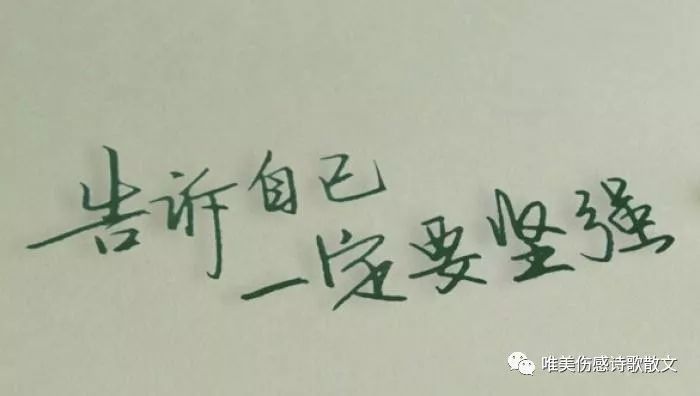 告诉自己
一定要坚强
唯美伤感诗歌散文